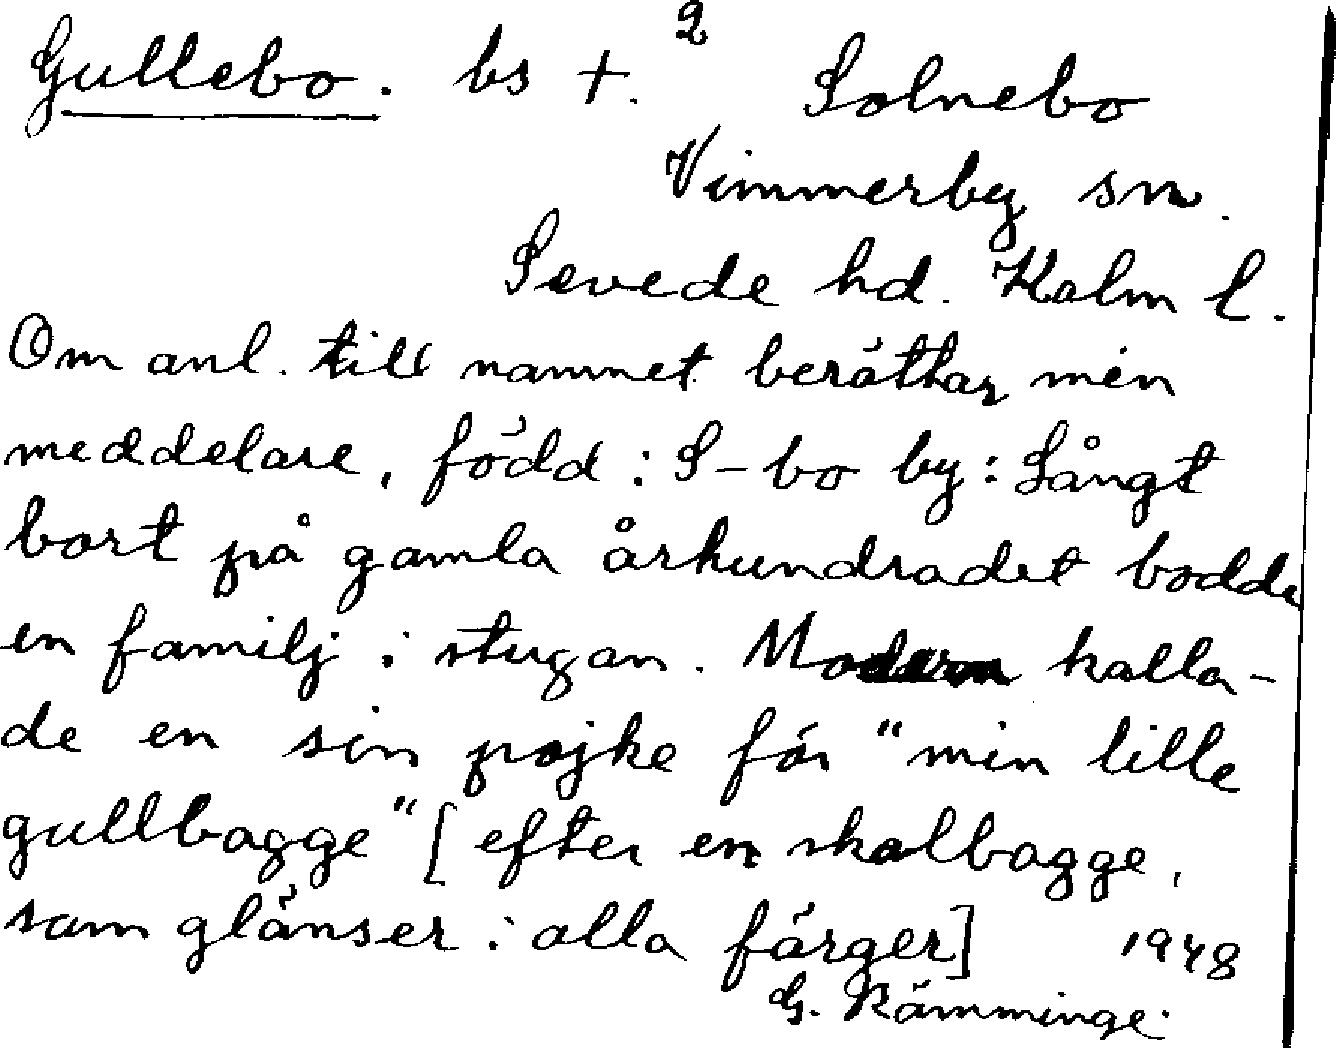 Gullebo. bs +. 2 Solnebo
Vimmerby sn.
Sevede hd. Kalm l.
Om anl. till namnet berättar min
meddelare, född i S-bo by: Långt
bort på gamla århundradet bodde
en familj i stugan. Modern kalla-
de en sin pojke för "min lille
gullbagge" [efter en skalbagge,
som glänser i alla färger] 1948
G. Rämminge.